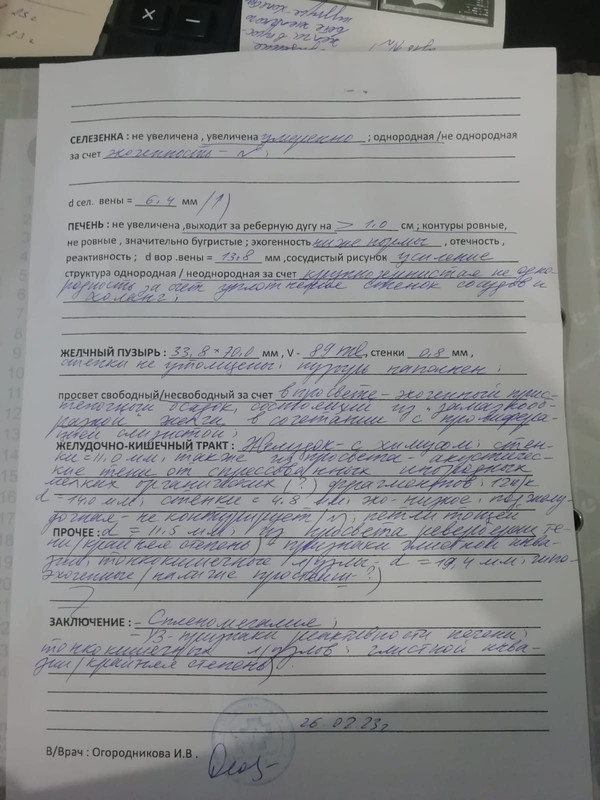 СЕЛЕЗЕНКА : не увеличена , увеличена умеренно ; однородная /не однородная
за счет эхогенность – N ;
d сел. вены = 6,4 мм /↑)
ПЕЧЕНЬ : не увеличена ,выходит за реберную дугу на > 1,0 см ; контуры ровные,
не ровные , значительно бугристые ; эхогенность ниже нормы , отечность ,
реактивность ; d вор .вены = 13,8 мм ,сосудистый рисунок усиление
структура однородная / неоднородная за счет крупнозернистая не одно-
родность за счет уплотнения стенок сосудов и
холанг ;
ЖЕЛЧНЫЙ ПУЗЫРЬ : 33,8 * 70,0 мм , V - 89 ml , стенки 0,8 мм ,
стенки не утолщены; пузырь наполнен ;
просвет свободный/несвободный за счет в просвете – эхогенный прис-
теночный осадок, состоящий из "замазкооб-
разной" желчи в сочетании с пролифера-
тивной слизистой;
ЖЕЛУДОЧНО-КИШЕЧНЫЙ ТРАКТ : Желудок – с химусом; стен-
ки = 11,0 мм, также из просвета – акустичес-
кие тени от спрессованных инородных
мелких органических (?) фрагментов; 12п/к
d = 14,0 мм; стенки = 4,8 мм, эхо-низкое; поджелу-
дочная, не контурирует /N; петли тощей
ПРОЧЕЕ : d = 11,5 мм; из просвета реверберац. те-
ни /крайняя степень) – признаки глистной инва-
зии, тонкокишечные л/узлы – d = 19,4 мм, гипо-
эхогенные /наличие простейш - ?)
ЗАКЛЮЧЕНИЕ : – Спленомегалия;
– УЗ-признаки реактивности печени;
тонкокишечных л/узлов; глистной инва-
зии /крайняя степень)
26 02 23г
В/Врач : Огородникова И.В .